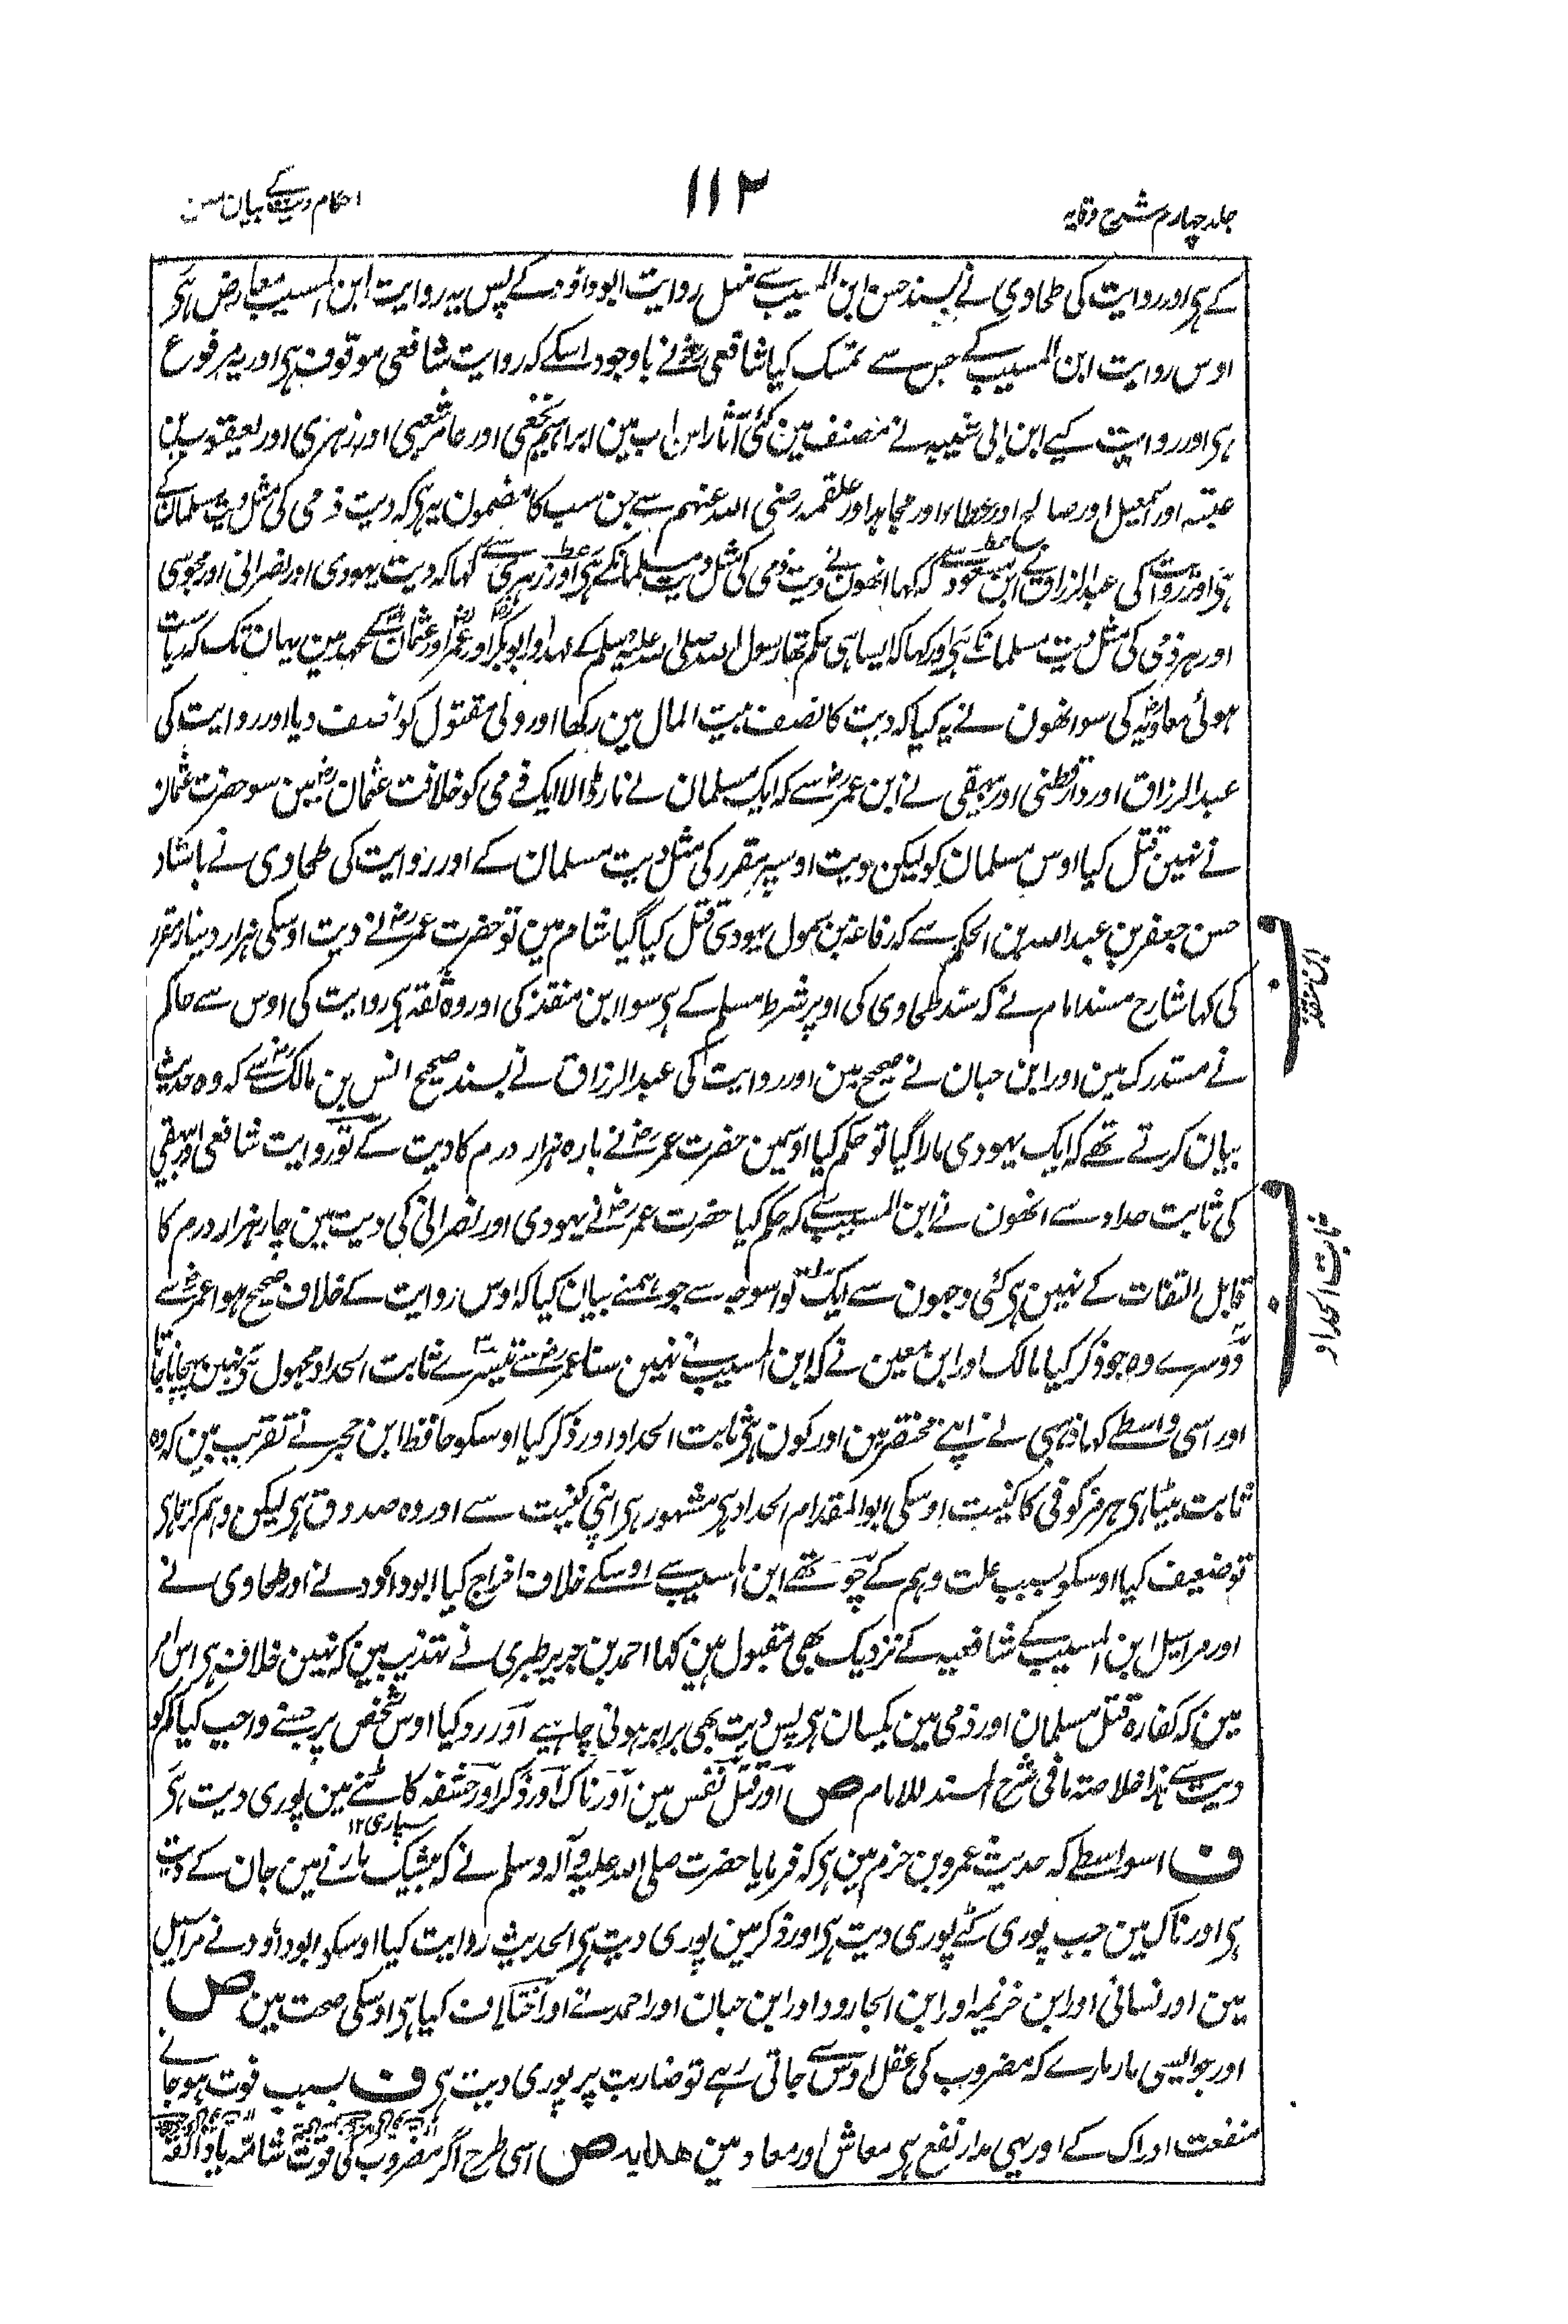 جلد چہارم شرح وقایہ
۱۱۲
احکام دیت کے بیان مین
کے ہی اور روایت کی طحاوی نے بسند حسن ابن المسیب سے مثل روایت ابو داؤد کے پس یہ روایت ابن المسیب معارض ہی
اوس روایت ابن المسیب کے جس سے تمسک کیا شافعی رح نے باوجود اسکے کہ روایت شافعی موقوف ہی اور یہ مرفوع
ہی اور روایت کیے ابن ابی شیبہ نے مصنف مین کئی آثار اس باب مین ابراہیم نخعی اور عامر شعبی اور زہری اور یعقوب بن
عتبہ اور اسمعیل اور صالح اور عطاء اور مجاہد اور علقمہ رضی اللہ عنہم سے جن سب کا مضمون یہ ہی کہ دیت ذمی کی مثل دیت مسلمان کے
ہی اور روایت کی عبد الرزاق نے ابن مسعود سے کہ کہا انھون نے دیت ذمی کی مثل دیت مسلمان کے ہی اور زہری سے کہا کہ دیت یہودی اور نصرانی اور مجوسی
اور ہر ذمی کی مثل دیت مسلمان کے ہی اور کہا کہ ایسا ہی حکم تھا رسول اللہ صلی اللہ علیہ وسلم کے عہد اور ابو بکر اور عمر اور عثمان کے عہد مین یہان تک کہ ریاست
ہوئی معاویہ کی سو انھون نے یہ کیا کہ دیت کا نصف بیت المال مین رکھا اور ولی مقتول کو نصف دیا اور روایت کی
عبد الرزاق اور دارقطنی اور بیہقی نے ابن عمر رض سے کہ ایک مسلمان نے مار ڈالا ایک ذمی کو خلافت عثمان رض مین سو حضرت عثمان
نے نہین قتل کیا اوس مسلمان کو لیکن دیت اوسپر مقرر کی مثل دیت مسلمان کے اور روایت کی طحاوی نے باسناد
حسن جعفر بن عبد اللہ بن الحکم سے کہ رفاعہ بن سمول یہودی قتل کیا گیا شام مین تو حضرت عمر رض نے دیت اوسکی ہزار دینار مقرر
کی کہا شارح مسند امام نے کہ سند طحاوی کی اوپر شرط مسلم کے ہی سوا ابن منقذ کی اور وہ ثقہ ہی روایت کی اوس سے حاکم
نے مستدرک مین اور ابن حبان نے صحیح مین اور روایت کی عبد الرزاق نے بسند صحیح انس بن مالک رض سے کہ وہ حدیث
بیان کرتے تھے کہ ایک یہودی مارا گیا تو حکم کیا اوسمین حضرت عمر رض نے بارہ ہزار درم کا دیت کے تو روایت شافعی اور بیہقی
کی ثابت حداد سے انھون نے ابن المسیب سے کہ حکم کیا حضرت عمر رض نے یہودی اور نصرانی کی دیت مین چار ہزار درم کا
قابل التفات کے نہین ہی کئی وجہون سے ایک تو اسوجہ سے جو ہمنے بیان کیا کہ اوس روایت کے خلاف صحیح ہوا عمر رض سے
دوسرے وہ جو ذکر کیا مالک اور ابن معین نے کہ ابن المسیب نے نہین سنا عمر رض سے تیسرے ثابت الحداد مجہول ہی نہین پہچانا جاتا
اور اسی واسطے کہا ذہبی نے اپنے مختصر مین اور کون ہی ثابت الحداد اور ذکر کیا اوسکو حافظ ابن حجر نے تقریب مین کہ وہ
ثابت بیٹا ہی ہرمز کوفی کا کنیت اوسکی ابو المقدام الحداد ہی مشہور ہی اپنی کنیت سے اور وہ صدوق ہی لیکن وہم کرتا ہی
تو ضعیف کیا اوسکو بسبب علت وہم کے چوتھے ابن المسیب سے اوسکے خلاف اخراج کیا ابو داؤد نے اور طحاوی نے
اور مراسیل ابن المسیب کے شافعیہ کے نزدیک بھی مقبول ہین کہا احمد بن جریر طبری نے تہذیب مین کہ نہین خلاف ہی اس امر
مین کہ کفارہ قتل مسلمان اور ذمی مین یکسان ہی پس دیت بھی برابر ہونی چاہیے اور رد کیا اوس شخص پر جسنے واجب کیا کم کو
دیت سے ہذا خلاصۃ ما فی شرح المسند للامام ص اور قتل نفس مین اور ناک اور ذکر اور حشفہ کاٹنے مین پوری دیت ہی
سپاری ۱۲
ف اسواسطے کہ حدیث عمرو بن حزم مین ہی کہ فرمایا حضرت صلی اللہ علیہ وآلہ وسلم نے کہ بیشک مارنے مین جان کے دیت
ہی اور ناک مین جب پوری کٹے پوری دیت ہی اور ذکر مین پوری دیت ہی الحدیث روایت کیا اوسکو ابو داؤد نے مراسیل
مین اور نسائی اور ابن خزیمہ اور ابن الجارود اور ابن حبان اور احمد نے اور اختلاف کیا ہی اوسکی صحت مین ص
اور جو ایسی مار مارے کہ مضروب کی عقل اوس سے جاتی رہے تو ضارب پر پوری دیت ہی ف بسبب فوت ہو جانے
منفعت ادراک کے اور یہی مدار نفع ہی معاش اور معاد مین ھدایہ ص اسی طرح اگر مضروب کی قوت شامہ یا ذائقہ
ثابت الحداد